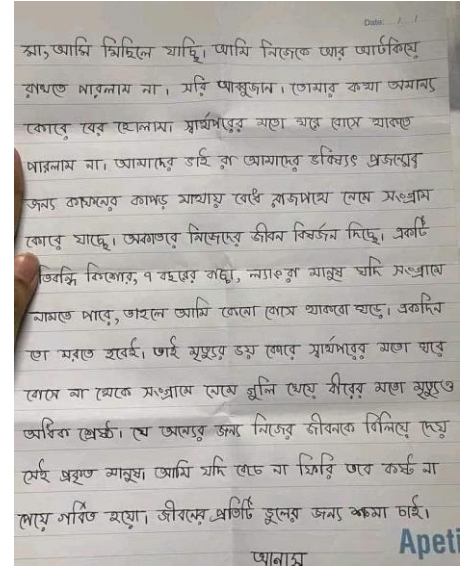 Date: / /
মা, আমি মিছিলে যাচ্ছি। আমি নিজেকে আর আটকিয়ে
রাখতে পারলাম না। সরি আব্বুজান। তোমার কথা অমান্য
কোরে বের হোলাম। স্বার্থপরের মতো ঘরে বোসে থাকতে
পারলাম না। আমাদের ভাই রা আমাদের ভবিষ্যৎ প্রজন্মের
জন্য কাফনের কাপড় মাথায় বেধে রাজপথে নেমে সংগ্রাম
কোরে যাচ্ছে। অকাতরে নিজেদের জীবন বিষর্জন দিচ্ছে। একটি
তিবন্ধি কিশোর, ৭ বছরের বাচ্চা, ল্যাংরা মানুষ যদি সংগ্রামে
নামতে পারে, তাহলে আমি কেনো বোসে থাকবো ঘড়ে। একদিন
তো মরতে হবেই। তাই মৃত্যুর ভয় কোরে স্বার্থপরের মতো ঘরে
বোসে না থেকে সংগ্রামে নেমে গুলি খেয়ে বীরের মতো মৃত্যুও
অধিক শ্রেষ্ঠ। যে অন্যের জন্য নিজের জীবনকে বিলিয়ে দেয়
সেই প্রকৃত মানুষ। আমি যদি বেচে না ফিরি তবে কষ্ট না
পেয়ে গর্বিত হয়ো। জীবনের প্রতিটি ভুলের জন্য ক্ষমা চাই।
আনাস
Apeti